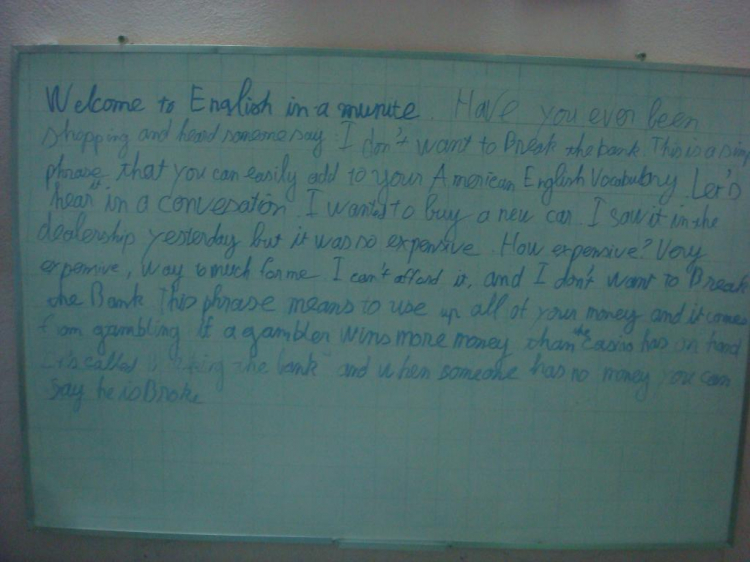 Welcome to English in a munute. Have you ever been
shopping and heard someone say I don't want to Break the bank. This is a
phrase that you can easily add to your American English Vocabulary Let's
hear it in a convesation. I want to buy a new car I saw it in the
dealership yesterday but it was so expensive. How expensive? Very
expensive, way to much for me I can't afford it, and I don't want to Break
the Bank. This phrase means to use up all of your money and it comes
gambling if a gambler wins more money than the casino has on hand
called the bank and when someone has no money you can
say he is Broke